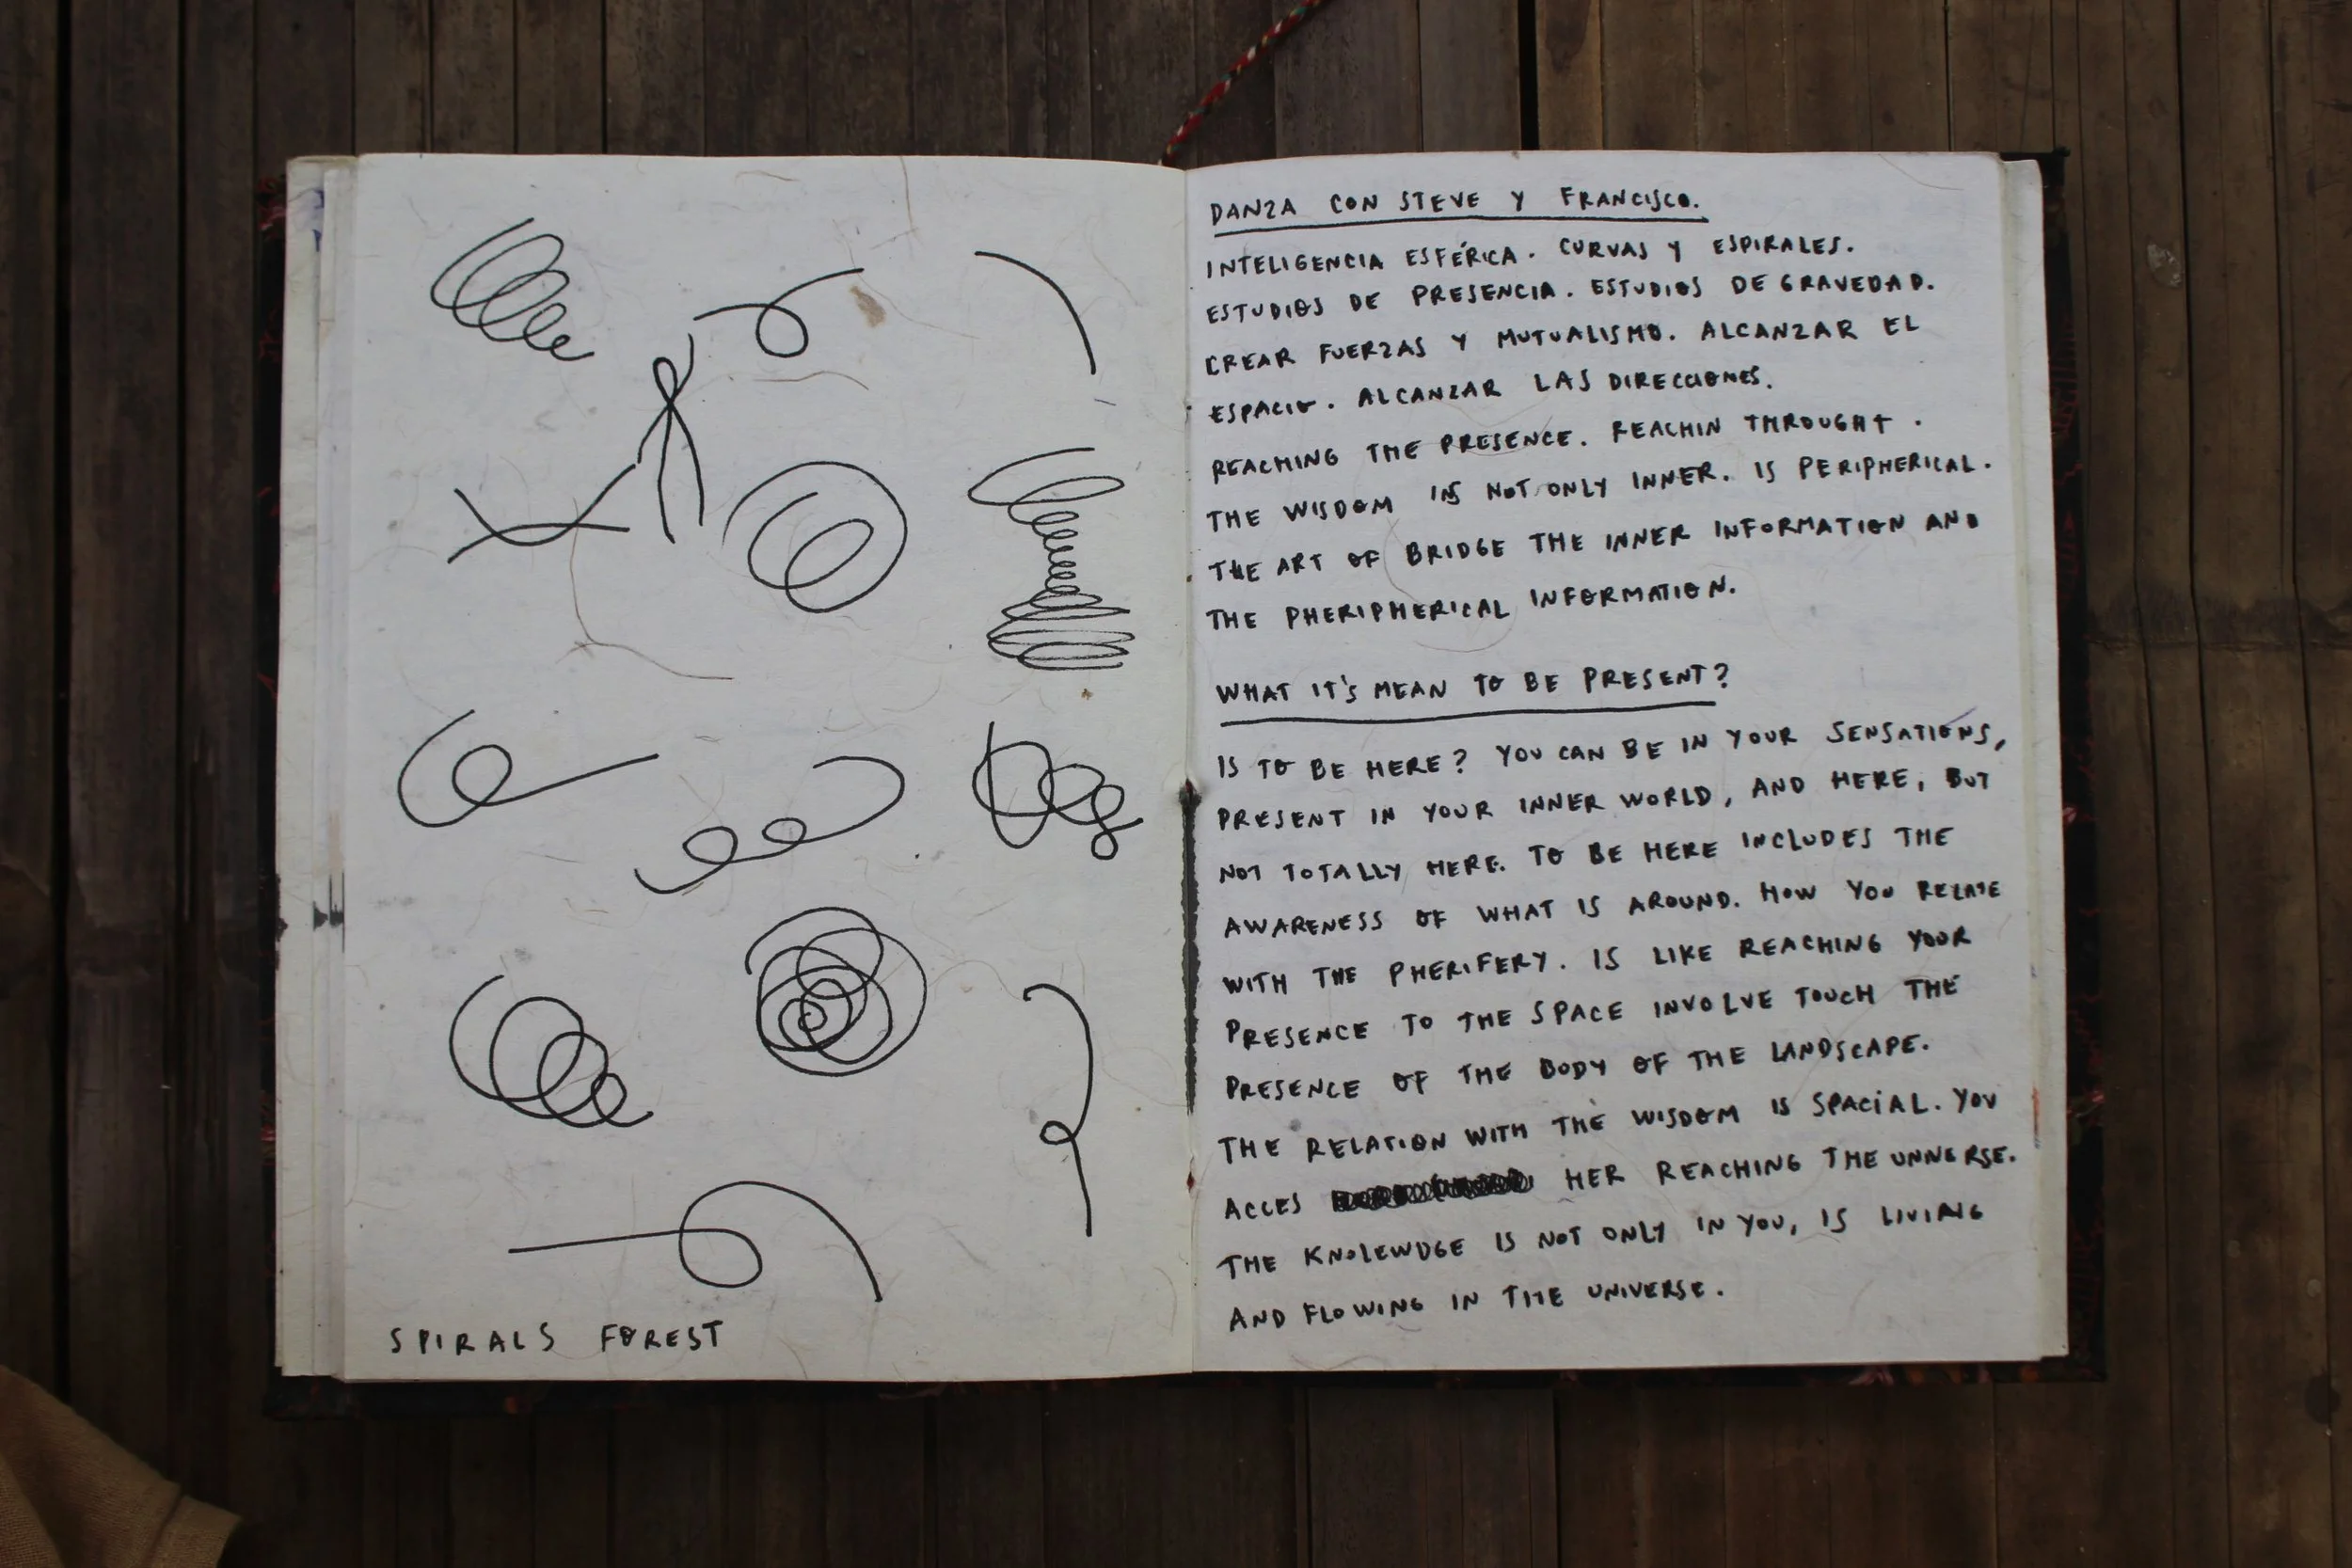 SPIRALS FOREST
DANZA CON STEVE Y FRANCISCO.
INTELIGENCIA ESFÉRICA. CURVAS Y ESPIRALES.
ESTUDIOS DE PRESENCIA. ESTUDIOS DE GRAVEDAD.
CREAR FUERZAS Y MUTUALISMO. ALCANZAR EL
ESPACIO. ALCANZAR LAS DIRECCIONES.
REACHING THE PRESENCE. REACHIN THROUGHT.
THE WISDOM IS NOT ONLY INNER. IS PERIPHERICAL.
THE ART OF BRIDGE THE INNER INFORMATION AND
THE PHERIPHERICAL INFORMATION.
WHAT IT'S MEAN TO BE PRESENT?
IS TO BE HERE? YOU CAN BE IN YOUR SENSATIONS,
PRESENT IN YOUR INNER WORLD, AND HERE, BUT
NOT TOTALLY HERE. TO BE HERE INCLUDES THE
AWARENESS OF WHAT IS AROUND. HOW YOU RELATE
WITH THE PHERIFERY. IS LIKE REACHING YOUR
PRESENCE TO THE SPACE INVOLVE TOUCH THE
PRESENCE OF THE BODY OF THE LANDSCAPE.
THE RELATION WITH THE WISDOM IS SPACIAL. YOU
ACCES HER REACHING THE UNIVERSE.
THE KNOLEWDGE IS NOT ONLY IN YOU, IS LIVING
AND FLOWING IN THE UNIVERSE.